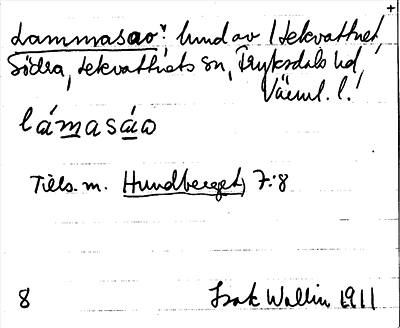 Lammasao: lund av Lekvattnet
Södra, Lekvattnets sn, Fryksdals hd,
Värml. l.
lámasáo
Tills. m. Hundberget, 7:8
8 Isak Wallin 1911